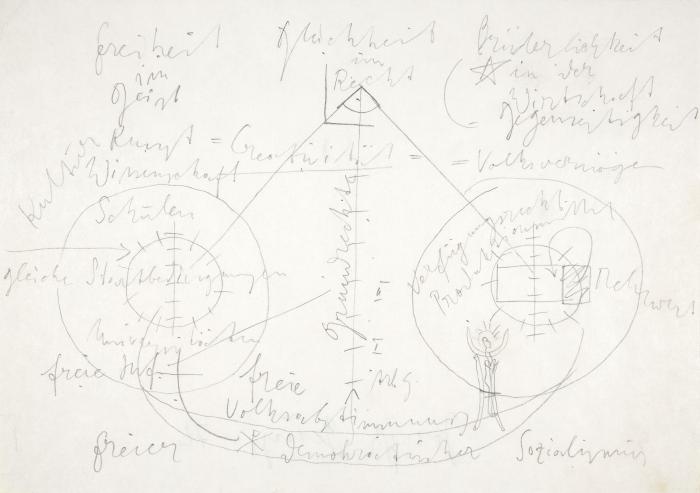 Freiheit
im
Geist
Gleichheit
im
Recht
Brüderlichkeit
in der
Wirtschaft
Gegenseitigkeit
Kultur
Kunst = Creativität = = Volksvermögen
Wissenschaft
Schulen
gleiche Startbedingungen
Universitäten
freie Inf.
Grundrechte
I II III
Verfügungsrecht
Produktions
Mehrwert
freie
Volksabstimmung
freier demokratischer Sozialismus